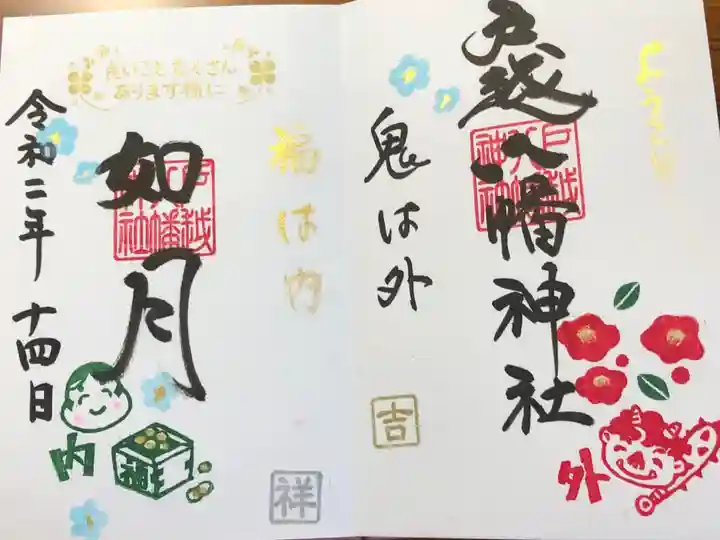 戸越八幡神社
戸越八幡神社
鬼は外
吉
外
福は内
祥
良いこと たくさん
あります様に
如月
戸越八幡神社
令和二年 十四日
内
福